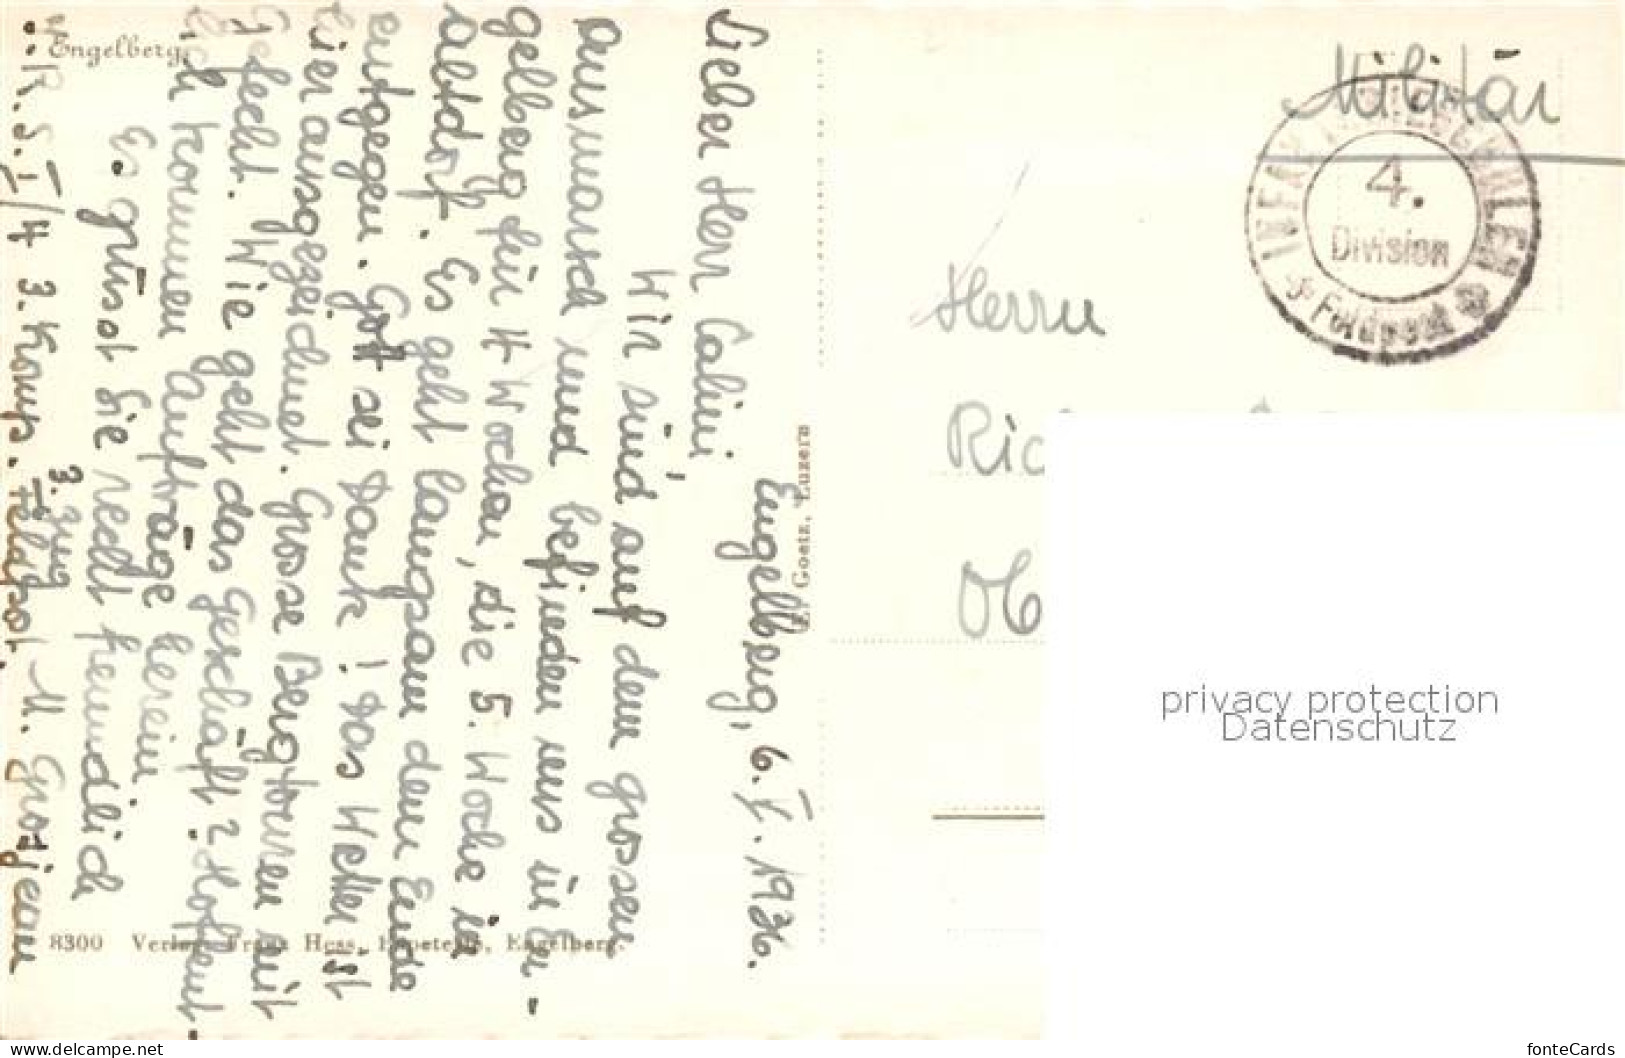 Engelberg
Engelberg, 6. V. 1936.
Lieber Herr Calini,
Wir sind auf dem grossen
Ausmarsch und befinden uns in En-
gelberg für 4 Wochen, die 5. Woche in
Altdorf. Es geht langsam dem Ende
entgegen. Gott sei Dank! Das Wetter ist
hier ausgezeichnet. Grosse Bergtouren mit
Gefecht. Wie geht das Geschäft? Hoffent-
lich kommen Aufträge herein.
Es grüsst Sie recht freundlich
3. Zug
J.R.S. I/4 3. Komp. Feldpost. M. Grosjean
E. Goetz, Luzern
8300 Verlag Franz Hess, Engelberg.
Militär
INFANTERIE
4.
Division
Feldpost
Herrn
Ric
Ob
privacy protection
Datenschutz
www.picclickimg.com
fonteCards